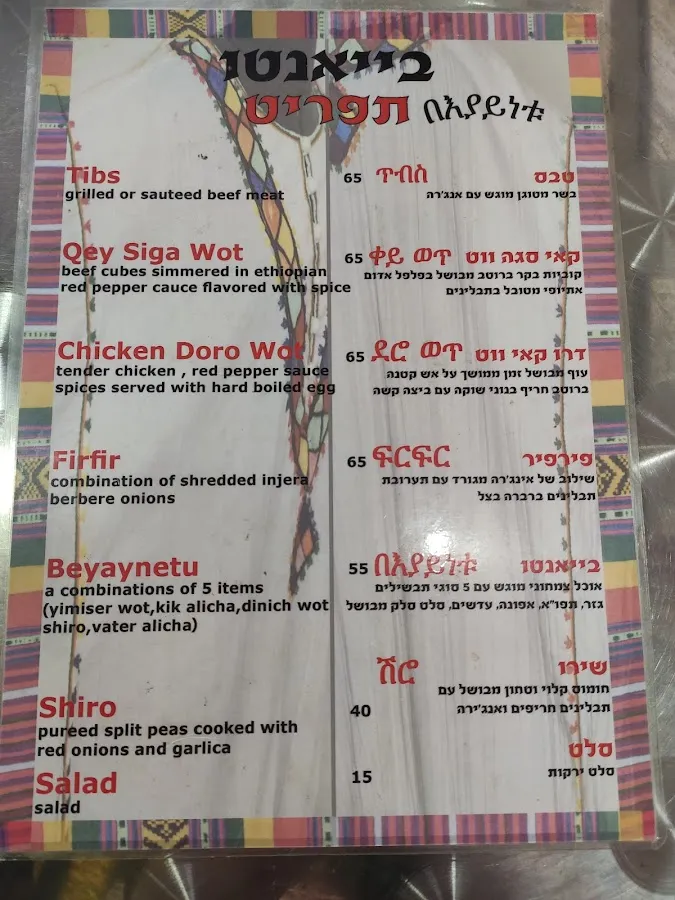 בייאנטו
תפריט በእያይነቱ
Tibs 65 ጥብስ טבס
grilled or sauteed beef meat בשר מטוגן מוגש עם אנג'רה
Qey Siga Wot 65 ቀይ ወጥ קאי סגה ווט
beef cubes simmered in ethiopian קוביות בקר ברוטב מבושל בפלפל אדום
red pepper cauce flavored with spice אתיופי מטובל בתבלינים
Chicken Doro Wot 65 ደሮ ወጥ דרו קאי ווט
tender chicken , red pepper sauce עוף מבושל זמן ממושך על אש קטנה
spices served with hard boiled egg ברוטב חריף בגוני שוקה עם ביצה קשה
Firfir 65 ፍርፍር פירפיר
combination of shredded injera שילוב של אינג'רה מגורד עם תערובת
berbere onions תבלינים ברברה בצל
Beyaynetu 55 በእያይነቱ בייאנטו
a combinations of 5 items אוכל צמחוני מוגש עם 5 סוגי תבשילים
(yimiser wot,kik alicha,dinich wot גזר, תפו"א, אפונה, עדשים, סלט סלק מבושל
shiro,vater alicha)
ሽሮ שירו
Shiro 40 חומוס קלוי וטחון מבושל עם
pureed split peas cooked with תבלינים חריפים ואנג'ירה
red onions and garlica
Salad 15 סלט
salad סלט ירקות